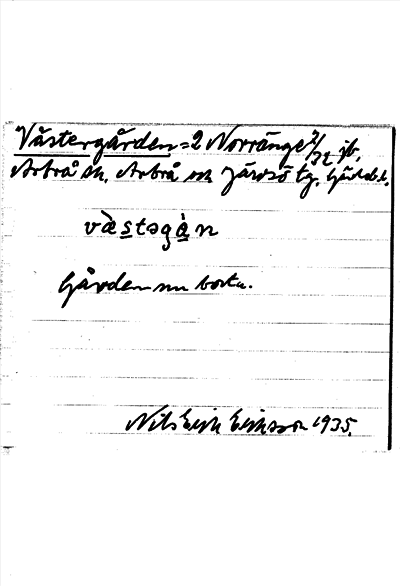 "Västergården = 2 Norränge 7/32 jb,
Arbrå sn, Arbrå och Järvsö tg, Gävleb. l.
väs̲tsgà̲n
Gården nu borta.
Nils Erik Eriksson 1935.